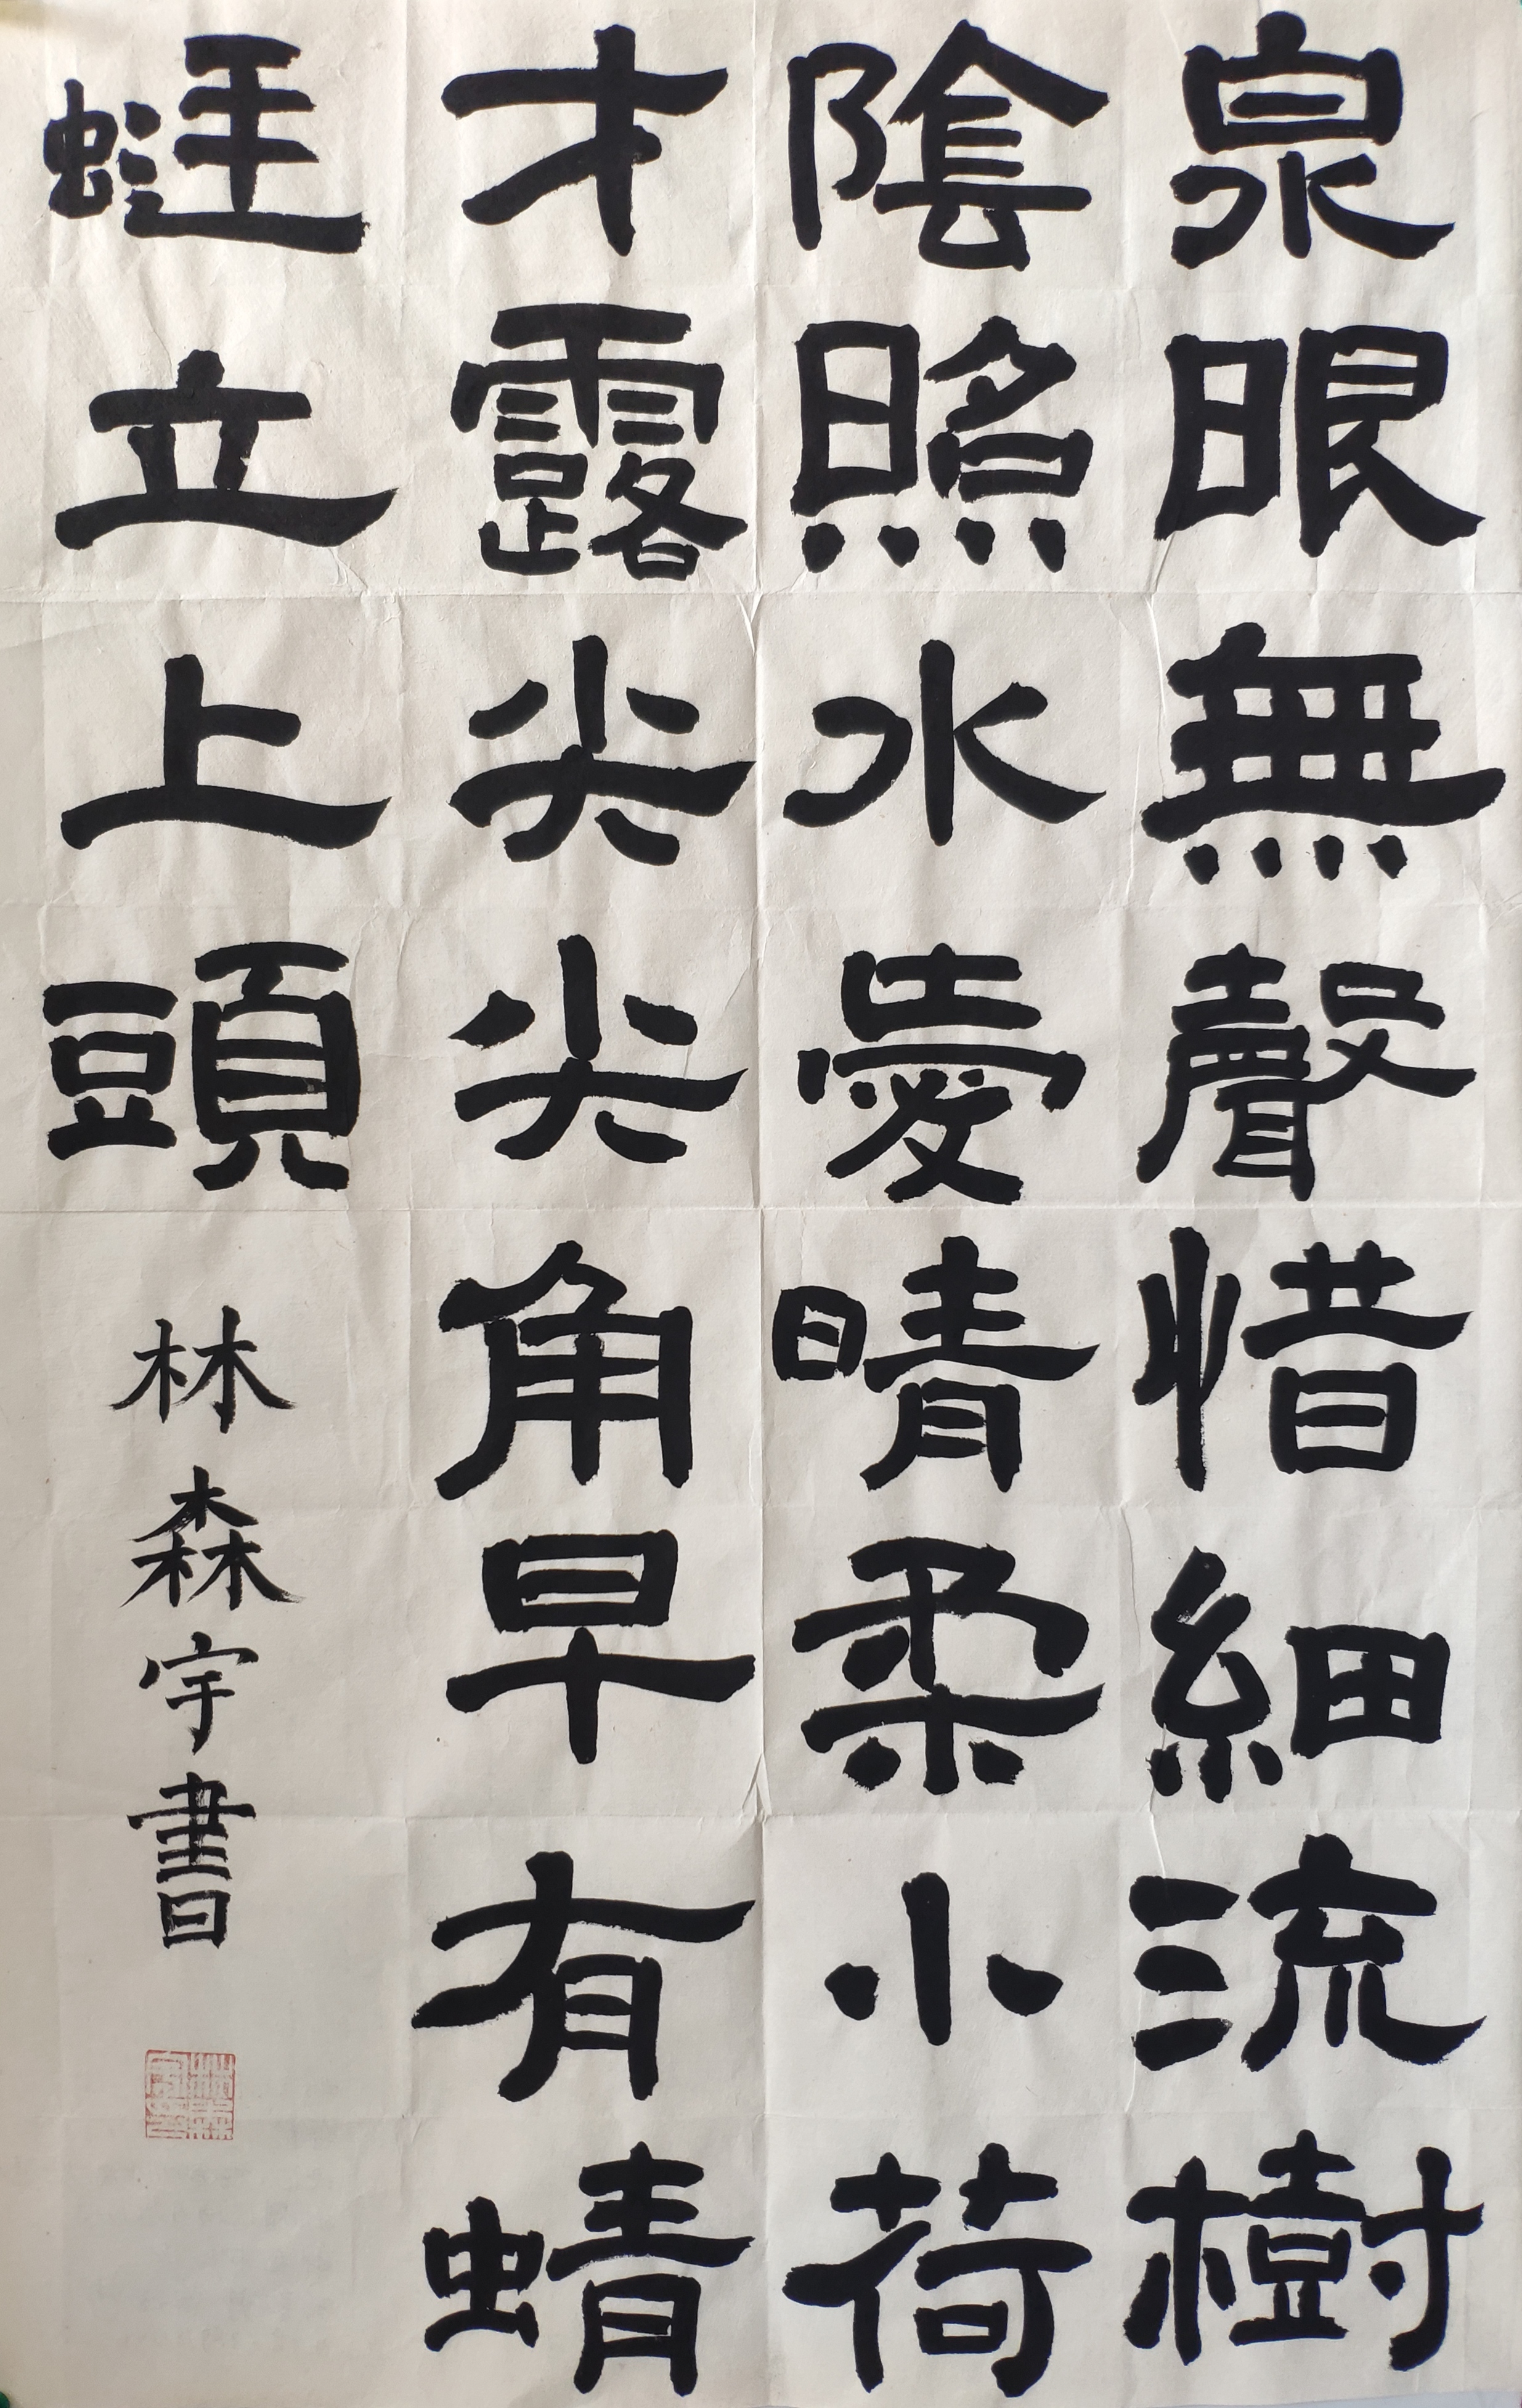 泉眼無聲惜細流樹
陰照水愛晴柔小荷
才露尖尖角早有蜻
蜓立上頭
林森宇書
林森